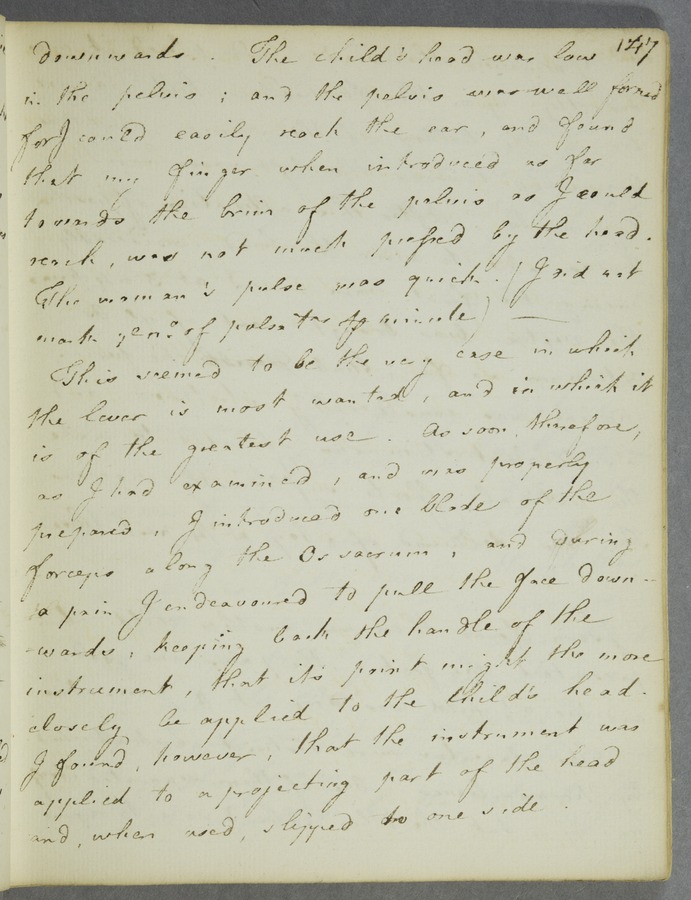 147
downwards. The child's head was low
in the pelvis; and the pelvis was well formed
for I could easily reach the ear, and found
that my finger when introduced as far
towards the brim of the pelvis as I could
reach, was not much pressed by the head.
The woman's pulse was quick. (I did not
mark ye no. of pulsatns minute) —
This seemed to be the very case in which
the lever is most wanted, and in which it
is of the greatest use. As soon, therefore,
as I had examined, and was properly
prepared, I introduced one blade of the
forceps along the Os sacrum, and during
a pain I endeavoured to pull the face down-
-wards, keeping back the handle of the
instrument, that its point might the more
closely be applied to the Child's head.
I found, however, that the instrument was
applied to a projecting part of the head
and, when used, slipped to one side.